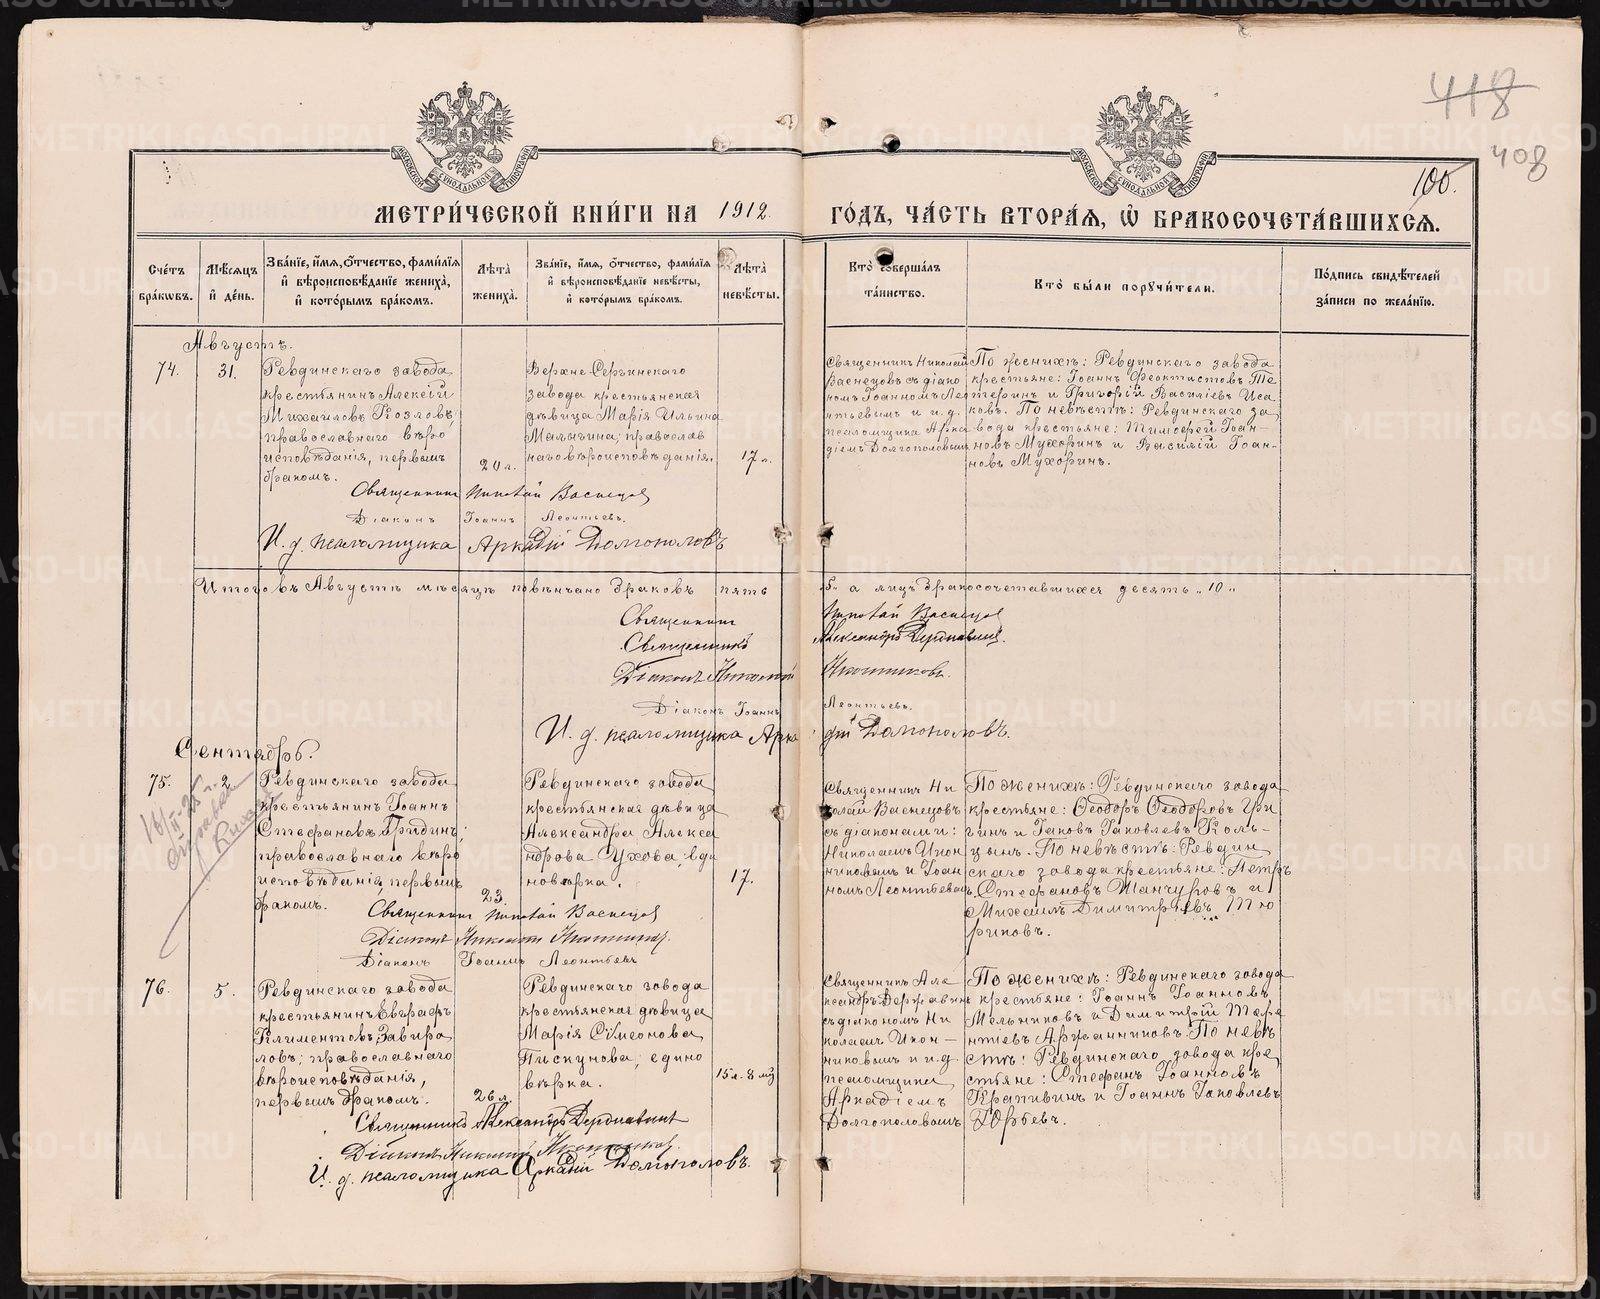 418
408
100.
МЕТРИ́ЧЕСКОЙ КНИ́ГИ НА 1912. ГО́ДЪ, ЧА́СТЬ ВТОРА́Я, Ѡ҆ БРАКОСОЧЕТА́ВШИХСЯ.
Сче́тъ бра́кωвъ.
Мѣ́сяцъ и҆ де́нь.
Зва́нїе, и҆́мя, ѻ҆́тчество, фами́лїя и҆ вѣроисповѣ́данїе жениха̀, и҆ кото́рымъ бра́комъ.
Лѣта̀ жениха̀.
Зва́нїе, и҆́мя, ѻ҆́тчество, фами́лїя и҆ вѣроисповѣ́данїе невѣ́сты, и҆ кото́рымъ бра́комъ.
Лѣта̀ невѣ́сты.
Кто̀ соверша́лъ та́инство.
Кто̀ бы́ли порꙋчи́тели.
По́дпись свидѣ́телей за́писи по жела́нїю.
Августъ.
74.
31.
Ревдинскаго завода
крестьянинъ Алексій
Михаиловъ Козловъ,
православнаго вѣро
исповѣданія, первымъ
бракомъ.
20 л.
Верхне-Сергинскаго
завода крестьянская
дѣвица Марія Ильина
Малыгина, православ
наго вѣроисповѣданія.
17 л.
Священникъ Николай
Васнецовъ съ діако
номъ Іоанномъ Лео
нтьевымъ и и. д.
псаломщика Арка
діемъ Долгополовымъ
По женихѣ: Ревдинскаго завода
крестьяне: Іоаннъ Феоктистовъ Те
теринъ и Григорій Василіевъ Иса
ковъ. По невѣстѣ: Ревдинскаго за
вода крестьяне: Тимофей Іоан-
новъ Мухоринъ и Василій Іоан-
новъ Мухоринъ.
Священникъ Николай Васнецов
Діаконъ Іоаннъ Леонтьевъ.
И. д. псаломщика Аркадій Долгополовъ
Итого въ Августѣ мѣсяцѣ повѣнчано браковъ пять 5. а лицъ бракосочетавшихся десять „10„
Священникъ Николай Васнецов
Священникъ Александръ Державинъ.
Діаконъ Николай Иконниковъ.
Діаконъ Іоаннъ Леонтьевъ.
И. д. псаломщика Аркадій Долгополовъ.
Сентябрь.
75.
2
16/II-25 г.
справка
Ревдинскаго завода
крестьянинъ Іоаннъ
Стефановъ Гридинъ,
православнаго вѣро
исповѣданія, первымъ
бракомъ.
23.
Ревдинскаго завода
крестьянская дѣвица
Александра Алекса
ндрова Ухова, еди
новѣрка.
17.
Священникъ Ни
колай Васнецовъ
съ діаконами:
Николаемъ Икон
никовымъ и Іоан
номъ Леонтьевымъ.
По женихѣ: Ревдинскаго завода
крестьяне: Ѳеодоръ Ѳеодоровъ Гри
гинъ и Іаковъ Іаковлевъ Коль-
цынъ. По невѣстѣ: Ревдин
скаго завода крестьяне: Петръ
Стефановъ Шанчуровъ и
Михаилъ Димитріевъ Тю
риковъ.
Священникъ Николай Васнецов
Діаконъ Николай Иконниковъ.
Діаконъ Іоаннъ Леонтьевъ
76.
5.
Ревдинскаго завода
крестьянинъ Евграфъ
Климентовъ Завира
ловъ, православнаго
вѣроисповѣданія,
первымъ бракомъ.
26 л.
Ревдинскаго завода
крестьянская дѣвица
Марія Сѵмеонова
Пискунова, едино
вѣрка.
15 л. 8 м.
Священникъ Але
ксандръ Державинъ
съ діакономъ Ни
колаемъ Икон-
никовымъ и и. д.
псаломщика
Аркадіемъ
Долгополовымъ
По женихѣ: Ревдинскаго завода
крестьяне: Іоаннъ Іоанновъ
Мельниковъ и Димитрій Тере
нтіевъ Аржанниковъ. По невѣ
стѣ: Ревдинскаго завода кре
стьяне: Стефанъ Іоанновъ
Крапивинъ и Іоаннъ Іаковлевъ
Юрьевъ.
Священникъ Александръ Державинъ
Діаконъ Николай Иконниковъ.
И. д. псаломщика Аркадій Долгополовъ.
METRIKI.GASO-URAL.RU